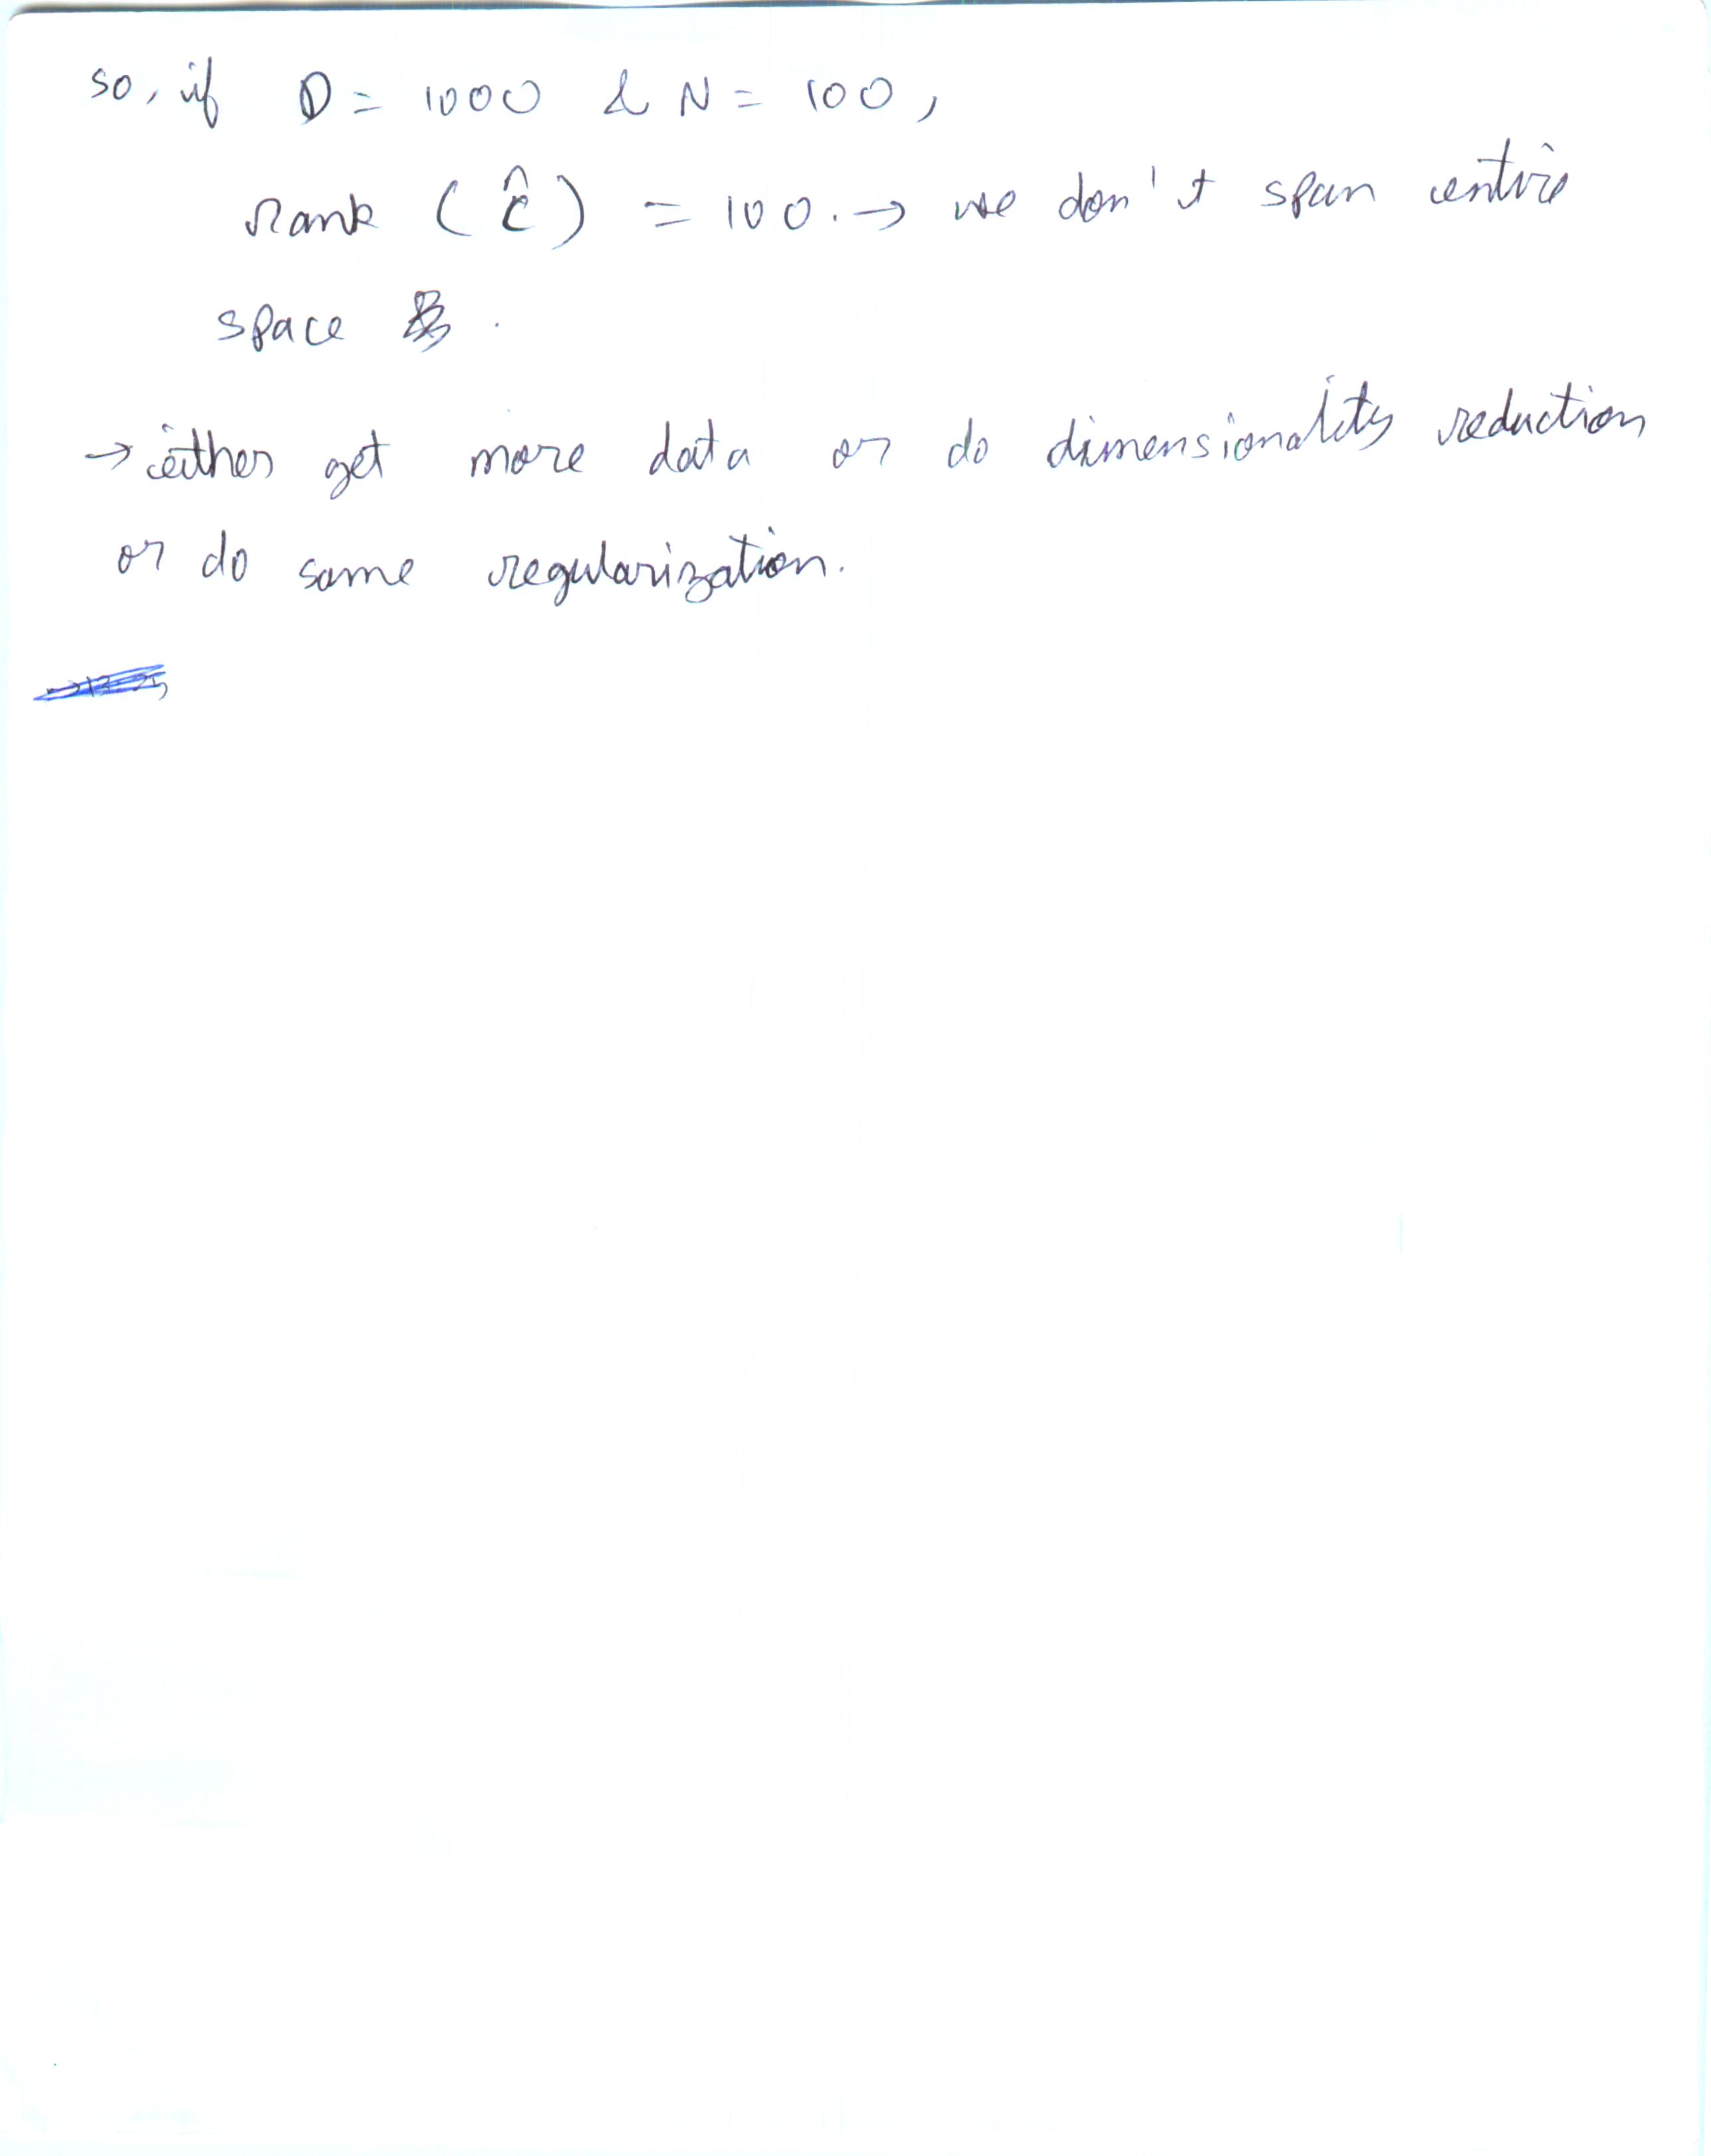 so, if D = 1000 & N = 100,
Rank (Ĉ) = 100. → we don't span entire
space .
→ either get more data or do dimensionality reduction
or do some regularization.